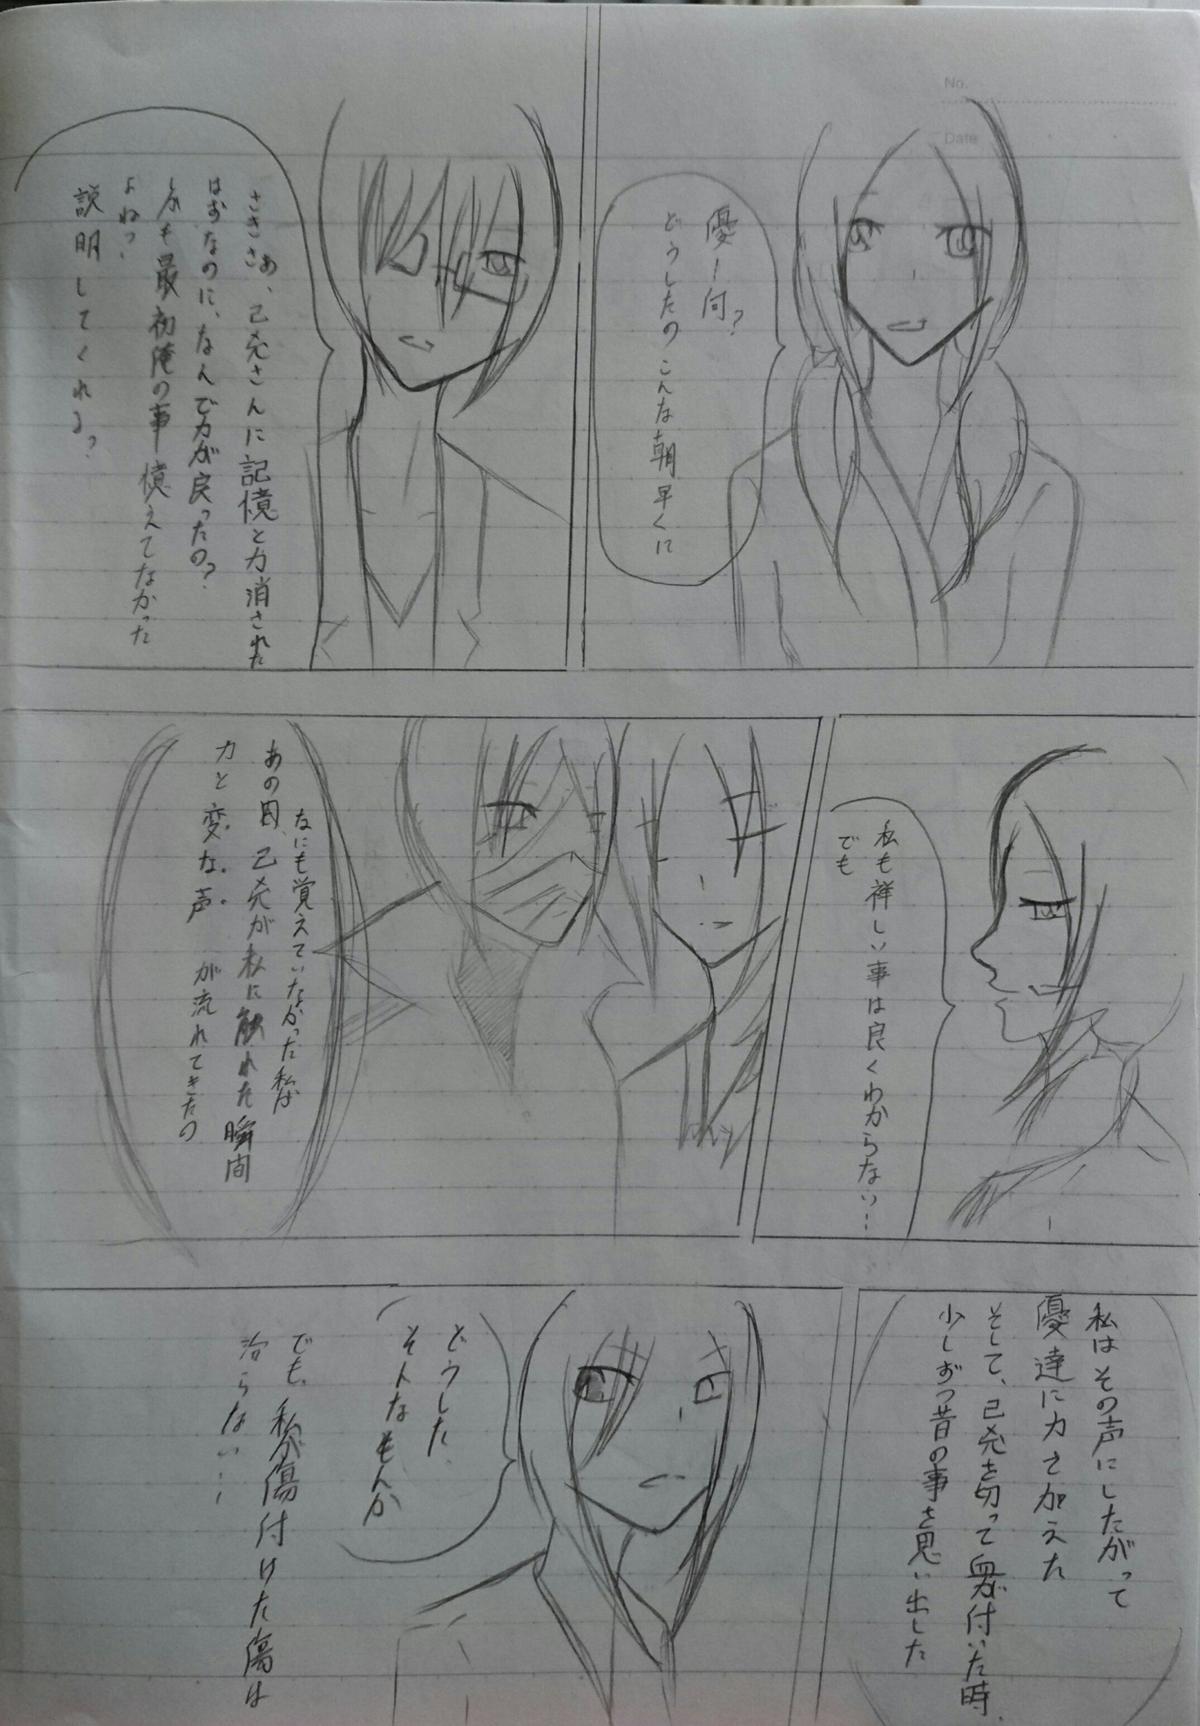 No.
Date
優ー何?
どうしたのこんな朝早くに
さききさぁ、己尭さんに記憶と力消された
はずなのに、なんで力が戻ったの?
しかも最初俺の事憶えてなかった
よね?
説明してくれる?
私も詳しい事は良くわからない…
でも
なにも覚えていなかった私は
あの日、己尭が私に触れた瞬間
力と変な声が流れてきたの
私はその声にしたがって
優達に力さ加えた
そして、己尭を切って血が付いた時、
少しずつ昔の事を思い出した
どうした
そんなもんか
でも、私が傷付けた傷は
治らない…